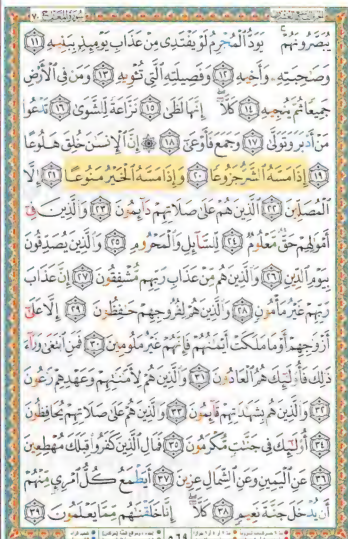 سورة المعارج ٧٠
يُبَصَّرُونَهُمْ يَوَدُّ الْمُجْرِمُ لَوْ يَفْتَدِي مِنْ عَذَابِ يَوْمِئِذٍ بِبَنِيهِ ١١
وَصَاحِبَتِهِ وَأَخِيهِ ١٢ وَفَصِيلَتِهِ الَّتِي تُؤْوِيهِ ١٣ وَمَن فِي الْأَرْضِ
جَمِيعًا ثُمَّ يُنجِيهِ ١٤ كَلَّا إِنَّهَا لَظَىٰ ١٥ نَزَّاعَةً لِّلشَّوَىٰ ١٦ تَدْعُوا
مَنْ أَدْبَرَ وَتَوَلَّىٰ ١٧ وَجَمَعَ فَأَوْعَىٰ ١٨ ۞ إِنَّ الْإِنسَانَ خُلِقَ هَلُوعًا
١٩ إِذَا مَسَّهُ الشَّرُّ جَزُوعًا ٢٠ وَإِذَا مَسَّهُ الْخَيْرُ مَنُوعًا ٢١ إِلَّا
الْمُصَلِّينَ ٢٢ الَّذِينَ هُمْ عَلَىٰ صَلَاتِهِمْ دَائِمُونَ ٢٣ وَالَّذِينَ فِي
أَمْوَالِهِمْ حَقٌّ مَّعْلُومٌ ٢٤ لِّلسَّائِلِ وَالْمَحْرُومِ ٢٥ وَالَّذِينَ يُصَدِّقُونَ
بِيَوْمِ الدِّينِ ٢٦ وَالَّذِينَ هُم مِّنْ عَذَابِ رَبِّهِم مُّشْفِقُونَ ٢٧ إِنَّ عَذَابَ
رَبِّهِمْ غَيْرُ مَأْمُونٍ ٢٨ وَالَّذِينَ هُمْ لِفُرُوجِهِمْ حَافِظُونَ ٢٩ إِلَّا عَلَىٰ
أَزْوَاجِهِمْ أَوْ مَا مَلَكَتْ أَيْمَانُهُمْ فَإِنَّهُمْ غَيْرُ مَلُومِينَ ٣٠ فَمَنِ ابْتَغَىٰ وَرَاءَ
ذَٰلِكَ فَأُولَٰئِكَ هُمُ الْعَادُونَ ٣١ وَالَّذِينَ هُمْ لِأَمَانَاتِهِمْ وَعَهْدِهِمْ رَاعُونَ
٣٢ وَالَّذِينَ هُم بِشَهَادَاتِهِمْ قَائِمُونَ ٣٣ وَالَّذِينَ هُمْ عَلَىٰ صَلَاتِهِمْ يُحَافِظُونَ
٣٤ أُولَٰئِكَ فِي جَنَّاتٍ مُّكْرَمُونَ ٣٥ فَمَالِ الَّذِينَ كَفَرُوا قِبَلَكَ مُهْطِعِينَ
٣٦ عَنِ الْيَمِينِ وَعَنِ الشِّمَالِ عِزِينَ ٣٧ أَيَطْمَعُ كُلُّ امْرِئٍ مِّنْهُمْ
أَن يُدْخَلَ جَنَّةَ نَعِيمٍ ٣٨ كَلَّا إِنَّا خَلَقْنَاهُم مِّمَّا يَعْلَمُونَ ٣٩
٥٦٩